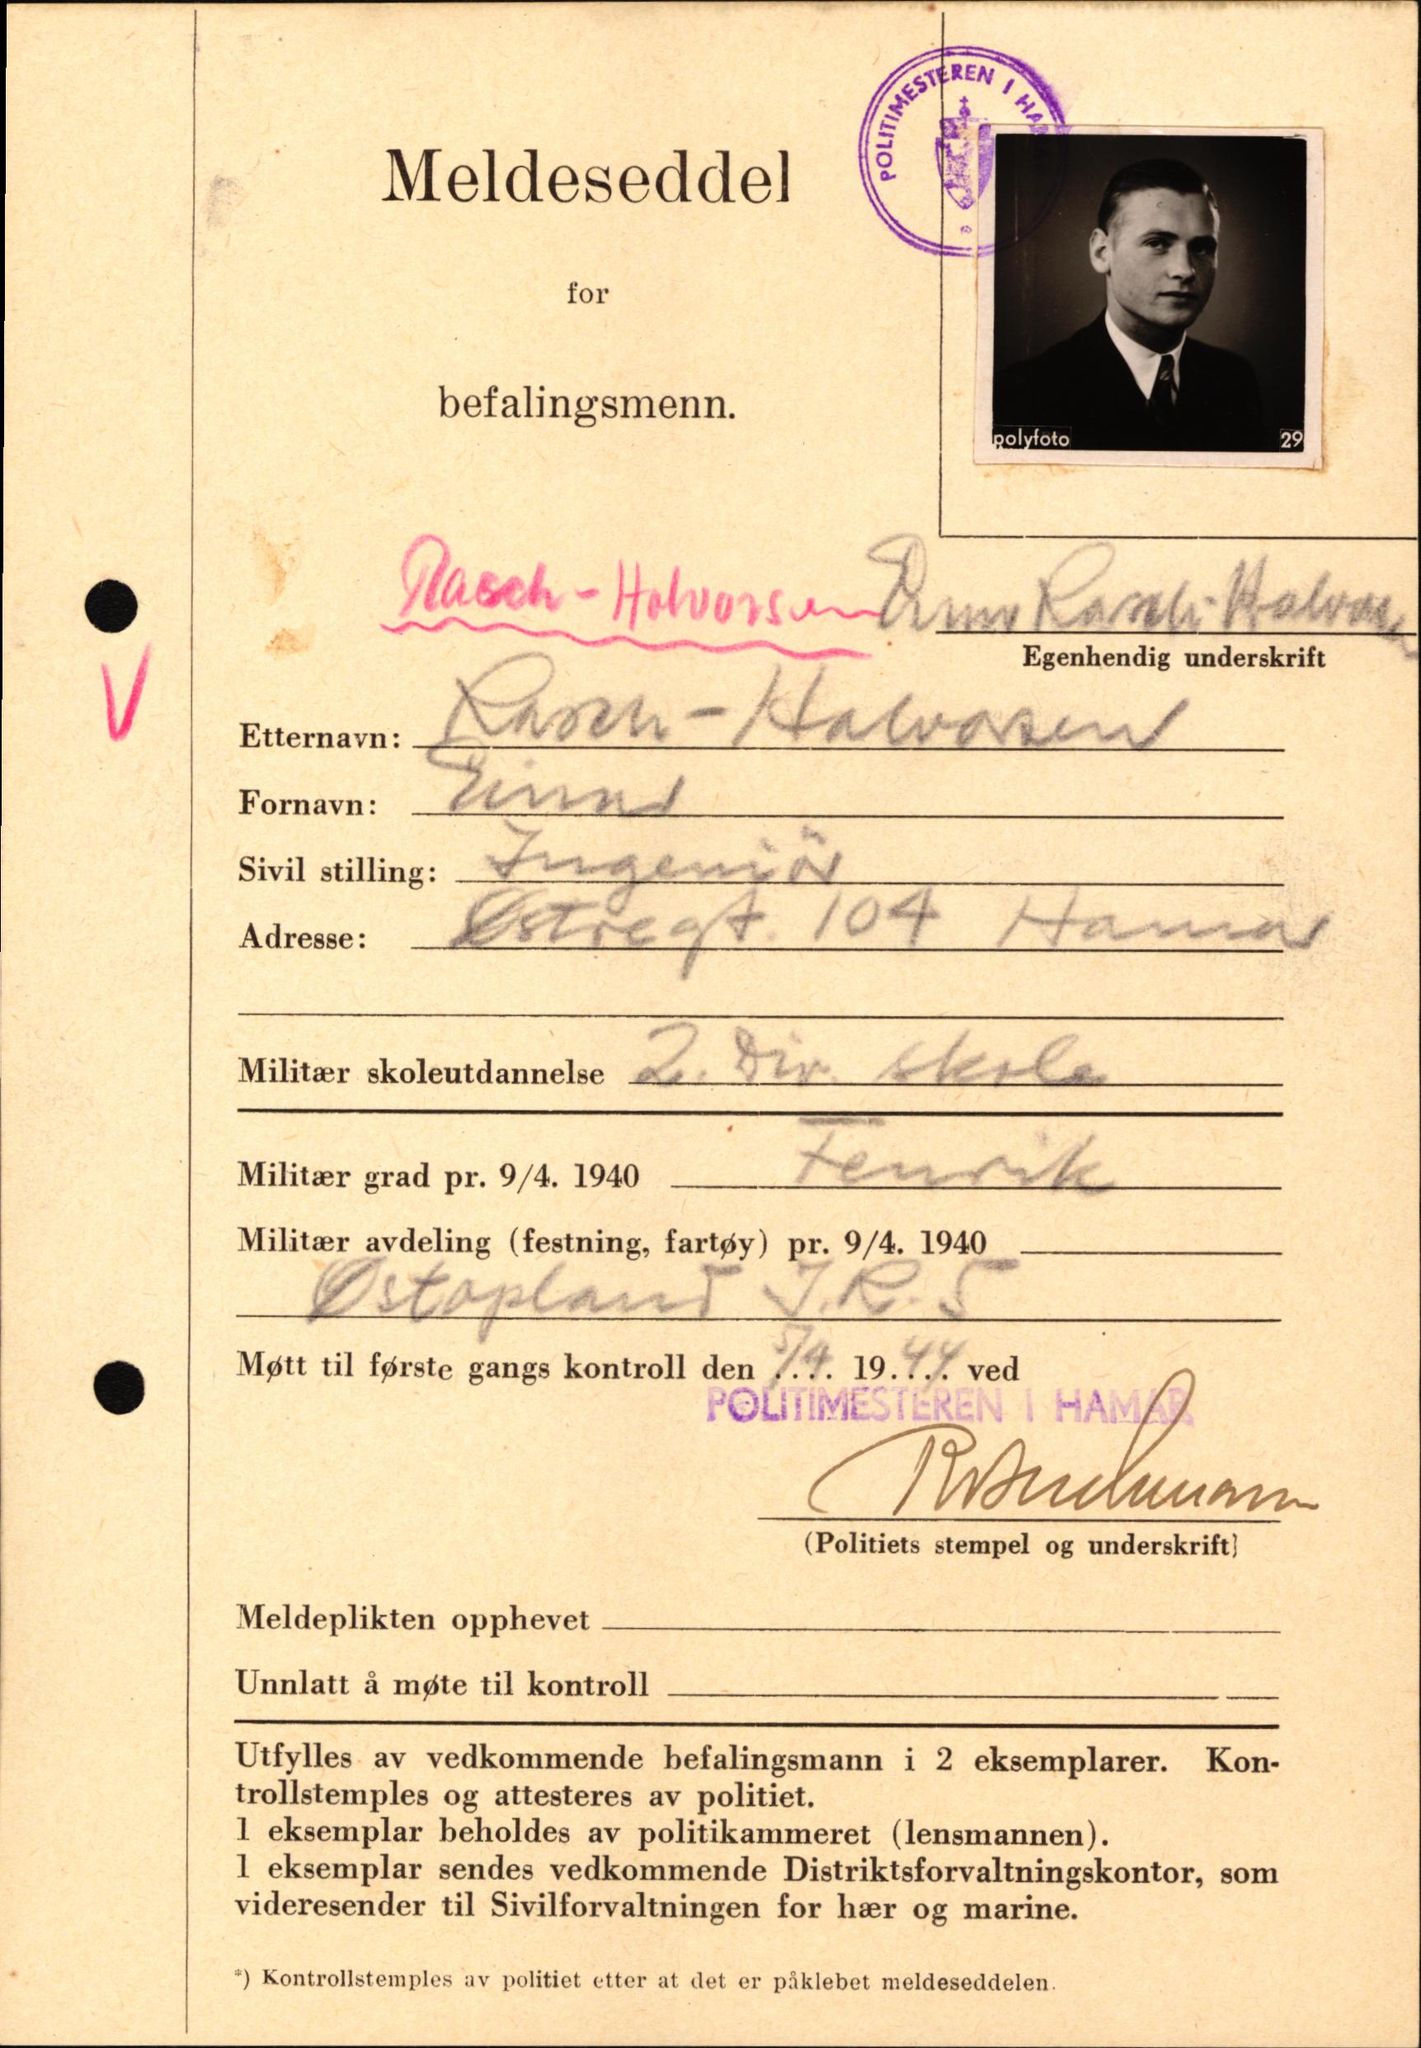 POLITIMESTEREN I HAMAR
Meldeseddel
for
befalingsmenn.
polyfoto 29
Rasch-Halvorsen
Einar Rasch-Halvorsen
Egenhendig underskrift
Etternavn: Rasch-Halvorsen
Fornavn: Einar
Sivil stilling: Ingeniör
Adresse: Østregt. 104 Hamar
Militær skoleutdannelse 2. Div. skole
Militær grad pr. 9/4. 1940 Fenrik
Militær avdeling (festning, fartøy) pr. 9/4. 1940
Østopland I.R. 5
Møtt til første gangs kontroll den 5/4. 19.44. ved
POLITIMESTEREN I HAMAR
(Politiets stempel og underskrift)
Meldeplikten opphevet
Unnlatt å møte til kontroll
Utfylles av vedkommende befalingsmann i 2 eksemplarer. Kon-
trollstemples og attesteres av politiet.
1 eksemplar beholdes av politikammeret (lensmannen).
1 eksemplar sendes vedkommende Distriktsforvaltningskontor, som
videresender til Sivilforvaltningen for hær og marine.
*) Kontrollstemples av politiet etter at det er påklebet meldeseddelen.